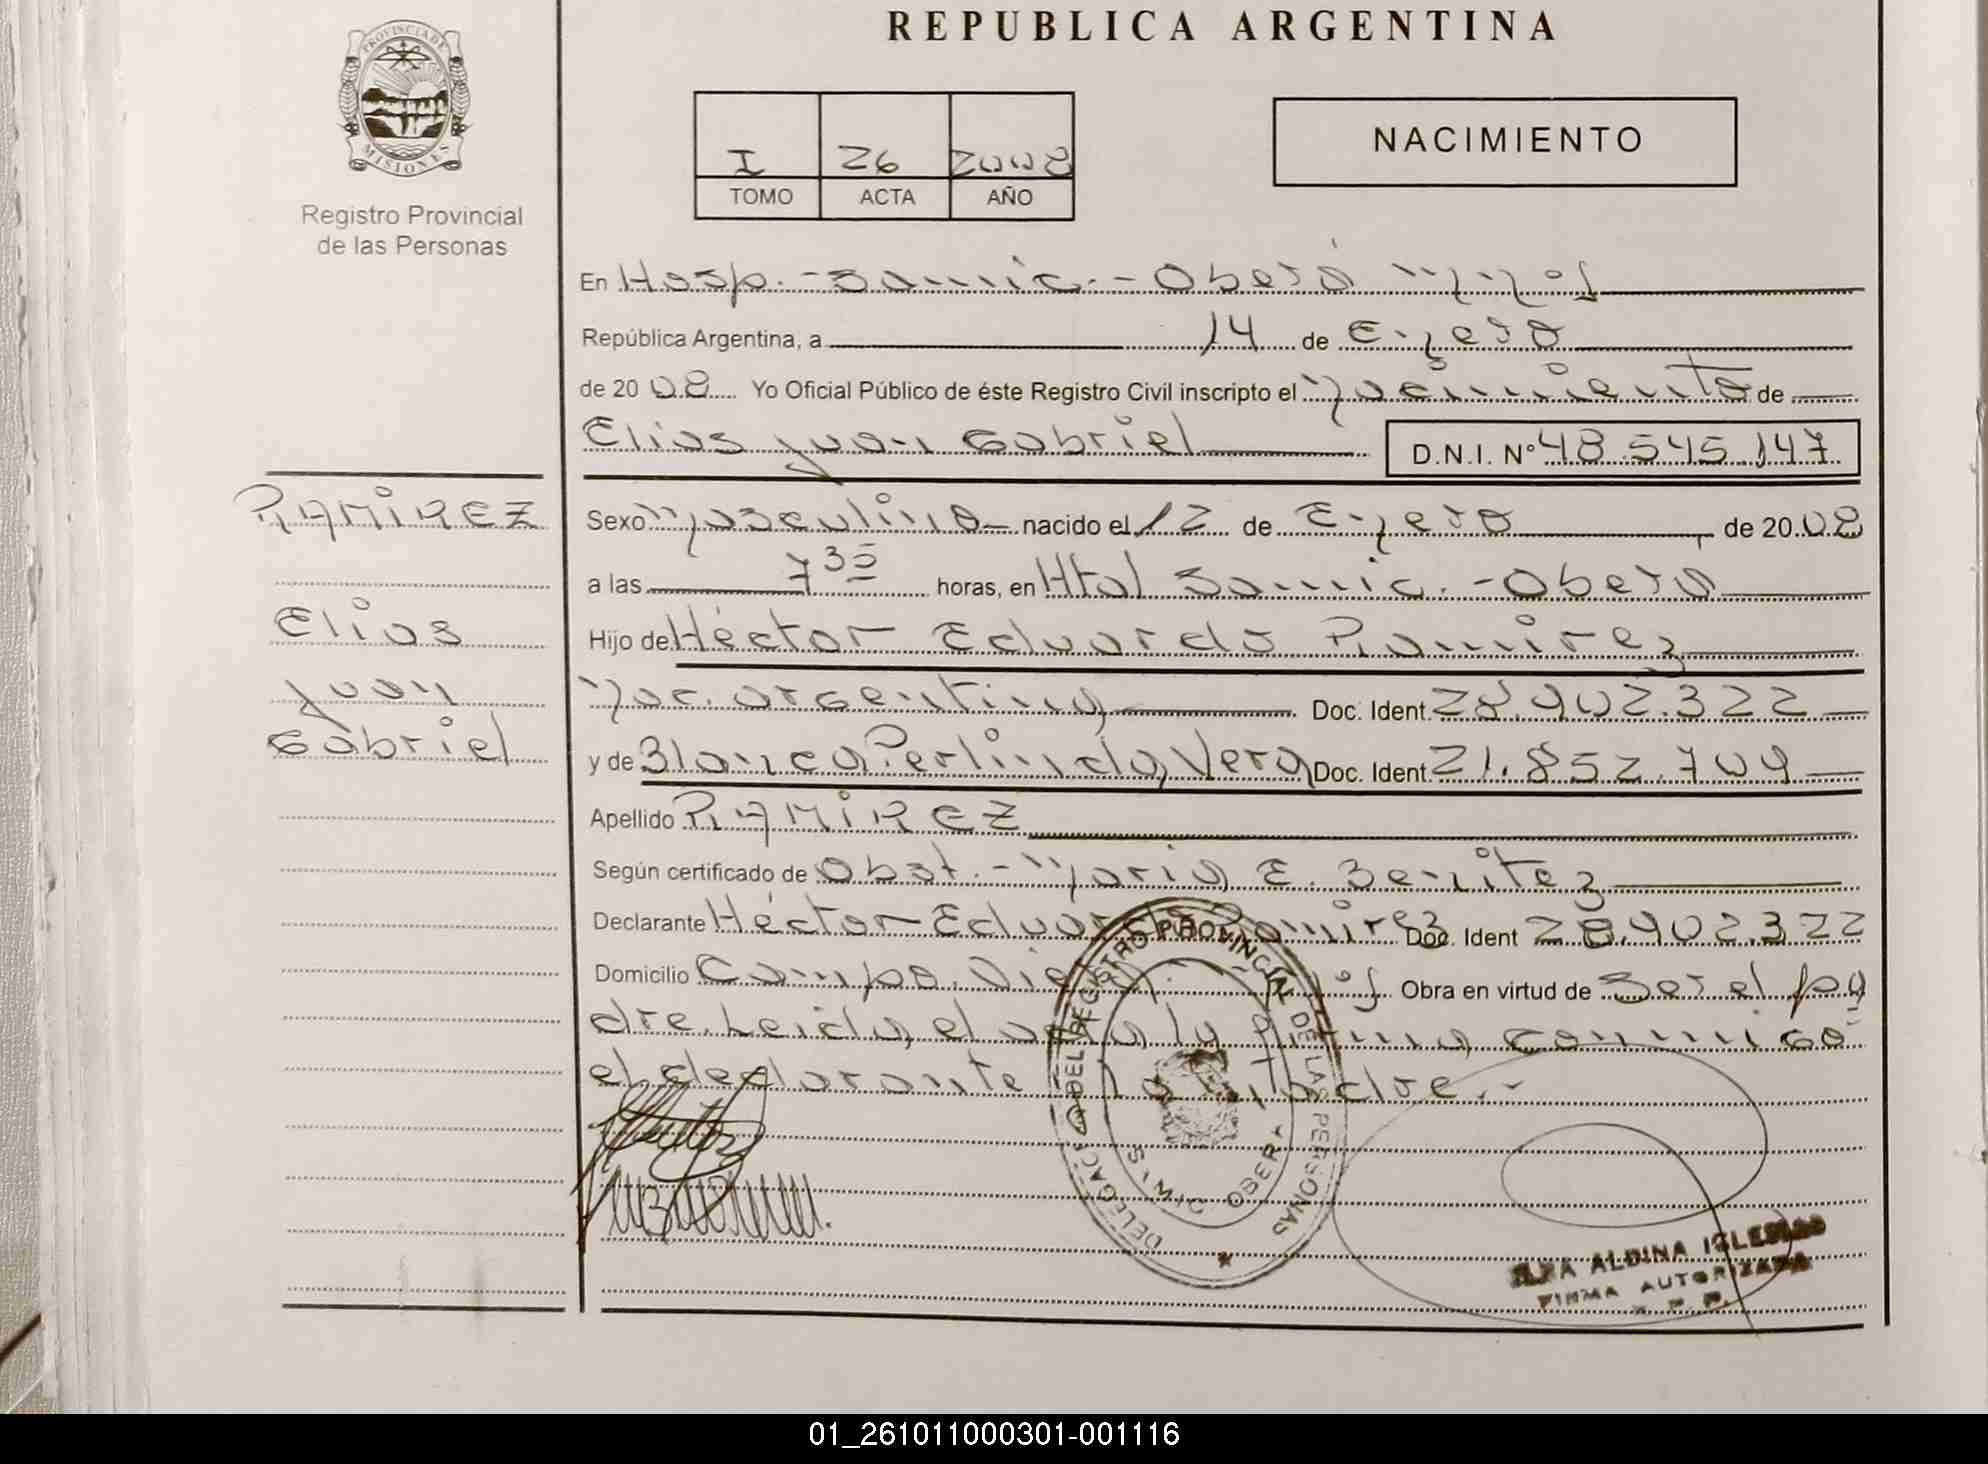 REPUBLICA ARGENTINA
PROVINCIA DE
MISIONES
Registro Provincial
de las Personas
I 26 2008
TOMO ACTA AÑO
NACIMIENTO
En Hosp.- Samic.- Oberá Mns
República Argentina, a 14 de Enero
de 2008 Yo Oficial Público de éste Registro Civil inscripto el Nacimiento de
Elias Juan Gabriel D.N.I. Nº 48.545.147
RAMIREZ
Elias
Juan
Gabriel
Sexo Masculino nacido el 12 de Enero de 2008
a las 7 35 horas, en Htal Samic.- Oberá
Hijo de Héctor Eduardo Ramirez
Nac. argentina Doc. Ident. 28.902.322
y de Blanca Perlinda Vera Doc. Ident. 21.852.709
Apellido RAMIREZ
Según certificado de Obst.- Maria E. Benitez
Declarante Héctor Eduardo Ramirez Doc. Ident 28.902.322
Domicilio Campo Obra en virtud de ser el pa
dre. Leida el acta la firma conmigo
el declarante y la madre.-
DELEGACION DEL REGISTRO PROVINCIAL DE LAS PERSONAS
OBERA
MISIONES
ALDINA IGLESIAS
FIRMA AUTORIZADA
R. P. P.
01_261011000301-001116